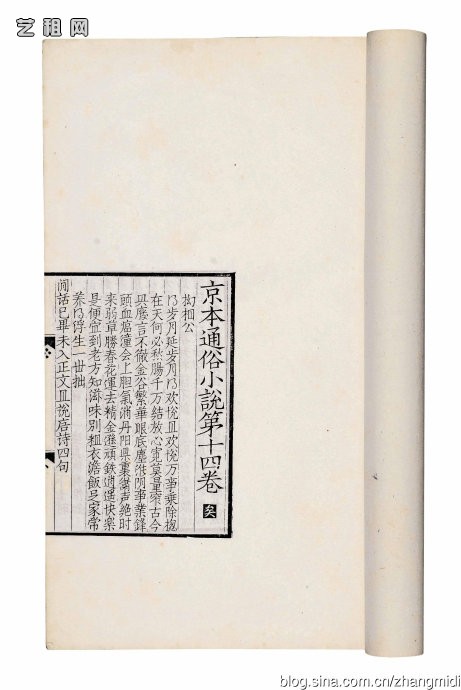 艺租网
京本通俗小說第十四卷
拗相公
乃岁月延岁月乃欢悅且欢悅万事乘除捴
在天何必秋腸千万結放心寛莫量窄古今
兴廢言不徹金谷繁華眼底塵淮阴事業鋒
頭血临潼会上胆氣消丹阳县裏簫声絶时
來弱草勝春花運去精金遜頑鉄逍遥快樂
是便宜到老方知滋味別粗衣澹飯足家常
养乃浮生一世拙
閒話已畢未入正文且說唐诗四句
blog.sina.com.cn/zhangmidi